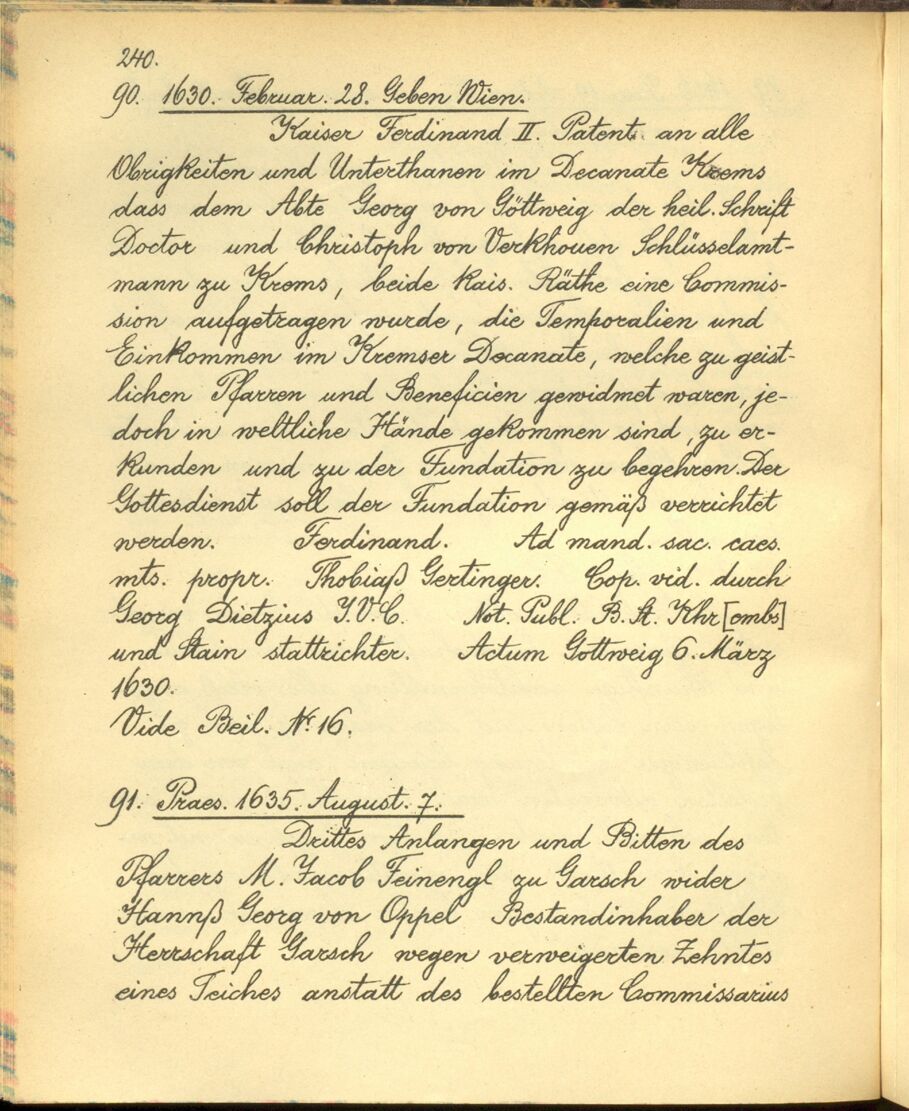 240.
90. 1630. Februar. 28. Geben Wien.
Kaiser Ferdinand II. Patent an alle
Obrigkeiten und Unterthanen im Decanate Krems
dass dem Abte Georg von Göttweig der heil. Schrift
Doctor und Christoph von Verkhouen Schlüsselamt-
mann zu Krems, beide kais. Räthe eine Commis-
sion aufgetragen wurde, die Temporalien und
Einkommen im Kremser Decanate, welche zu geist-
lichen Pfarren und Beneficien gewidmet waren, je-
doch in weltliche Hände gekommen sind, zu er-
kunden und zu der Fundation zu begehren. Der
Gottesdienst soll der Fundation gemäß verrichtet
werden. Ferdinand. Ad mand. sac. caes.
mts. propr. Thobiaß Gertinger. Cop. vid. durch
Georg Dietzius J.V.C. Not. Publ. B. St. Khr[embs]
und Stain stattrichter. Actum Gottweig 6. März
1630.
Vide Beil. Nr. 16.
91. Praes. 1635. August. 7.
Drittes Anlangen und Bitten des
Pfarrers M. Jacob Feinengl zu Garsch wider
Hannß Georg von Oppel Bestandinhaber der
Herrschaft Garsch wegen verweigerten Zehntes
eines Teiches anstatt des bestellten Commissarius